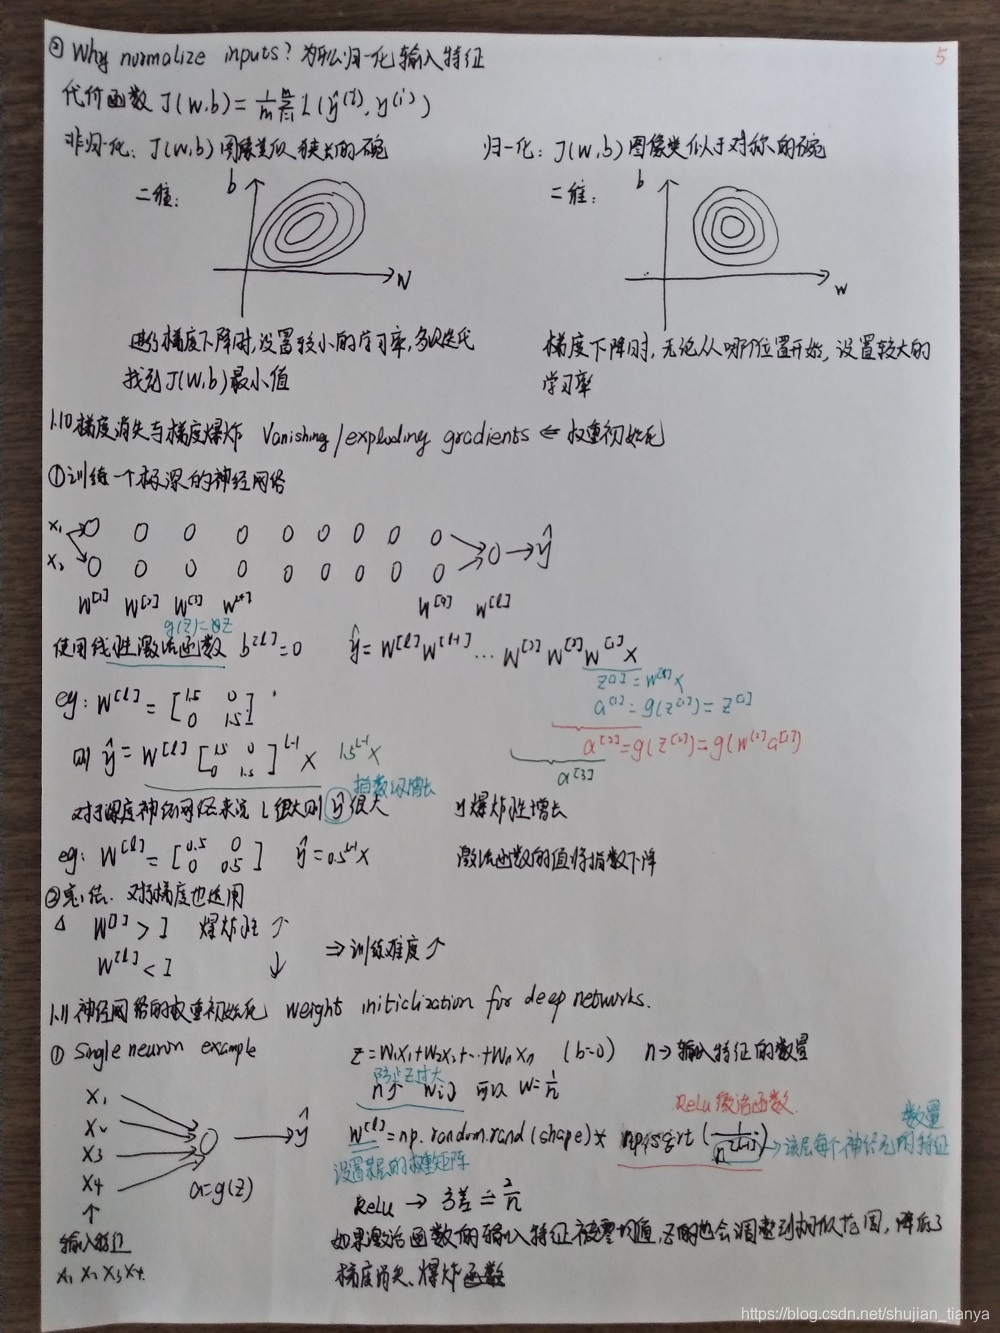 ② Why normalize inputs? 为什么归一化输入特征
5
代价函数 J(w,b) = 1/m Σ L(ŷ^(i), y^(i))
非归一化: J(w,b) 图像类似狭长的碗
归一化: J(w,b) 图像类似于对称的碗
二维:
b
w
二维:
b
w
进行梯度下降时,设置较小的学习率,多次迭代
找到 J(w,b) 最小值
梯度下降时, 无论从哪个位置开始, 设置较大的
学习率
1.10 梯度消失与梯度爆炸 Vanishing/exploding gradients ⇐ 权重初始化
① 训练一个极深的神经网络
x₁
x₂
ŷ
w^[1] w^[2] w^[3] w^[4] w^[l]
g(z)=z
使用线性激活函数 b^[l]=0 ŷ = w^[l] w^[l-1] ... w^[3] w^[2] w^[1] x
z^[1] = w^[1]x
a^[1] = g(z^[1]) = z^[1]
eg: W^[l] = [1.5 0
0 1.5]
a^[2] = g(z^[2]) = g(w^[2]a^[1])
a^[3]
则 ŷ = W^[l] [1.5 0
0 1.5]^(L-1) X 1.5^(L-1) X
指数级增长
对于深度神经网络来说 L很大则 ŷ 很大 ŷ爆炸性增长
eg: W^[l] = [0.5 0
0 0.5] ŷ = 0.5^(L-1) X 激活函数的值将指数下降
② 总结. 对于梯度也适用
△ W^[l] > I 爆炸性 ↑
W^[l] < I ↓
⇒ 训练难度 ↑
1.11 神经网络的权重初始化 weight initiclization for deep networks.
① Single neuron example
z = w₁x₁+w₂x₂+...+wₙxₙ (b=0) n→输入特征的数量
防止z过大
n↑ wᵢ↓ 可以 w=1/n
Relu 激活函数.
数量
W^[l] = np.random.rand(shape) * np.sqrt(1/n^[l-1]) → 该层每个神经元的特征
设置某层的权重矩阵
x₁
x₂
x₃
x₄
ŷ
a=g(z)
↑
输入特征
x₁ x₂ x₃ x₄
Relu → 方差 = 2/n
如果激活函数的输入特征被零均值, z的也会调整到相似范围, 降低了
梯度消失、爆炸函数
https://blog.csdn.net/shujian_tianya